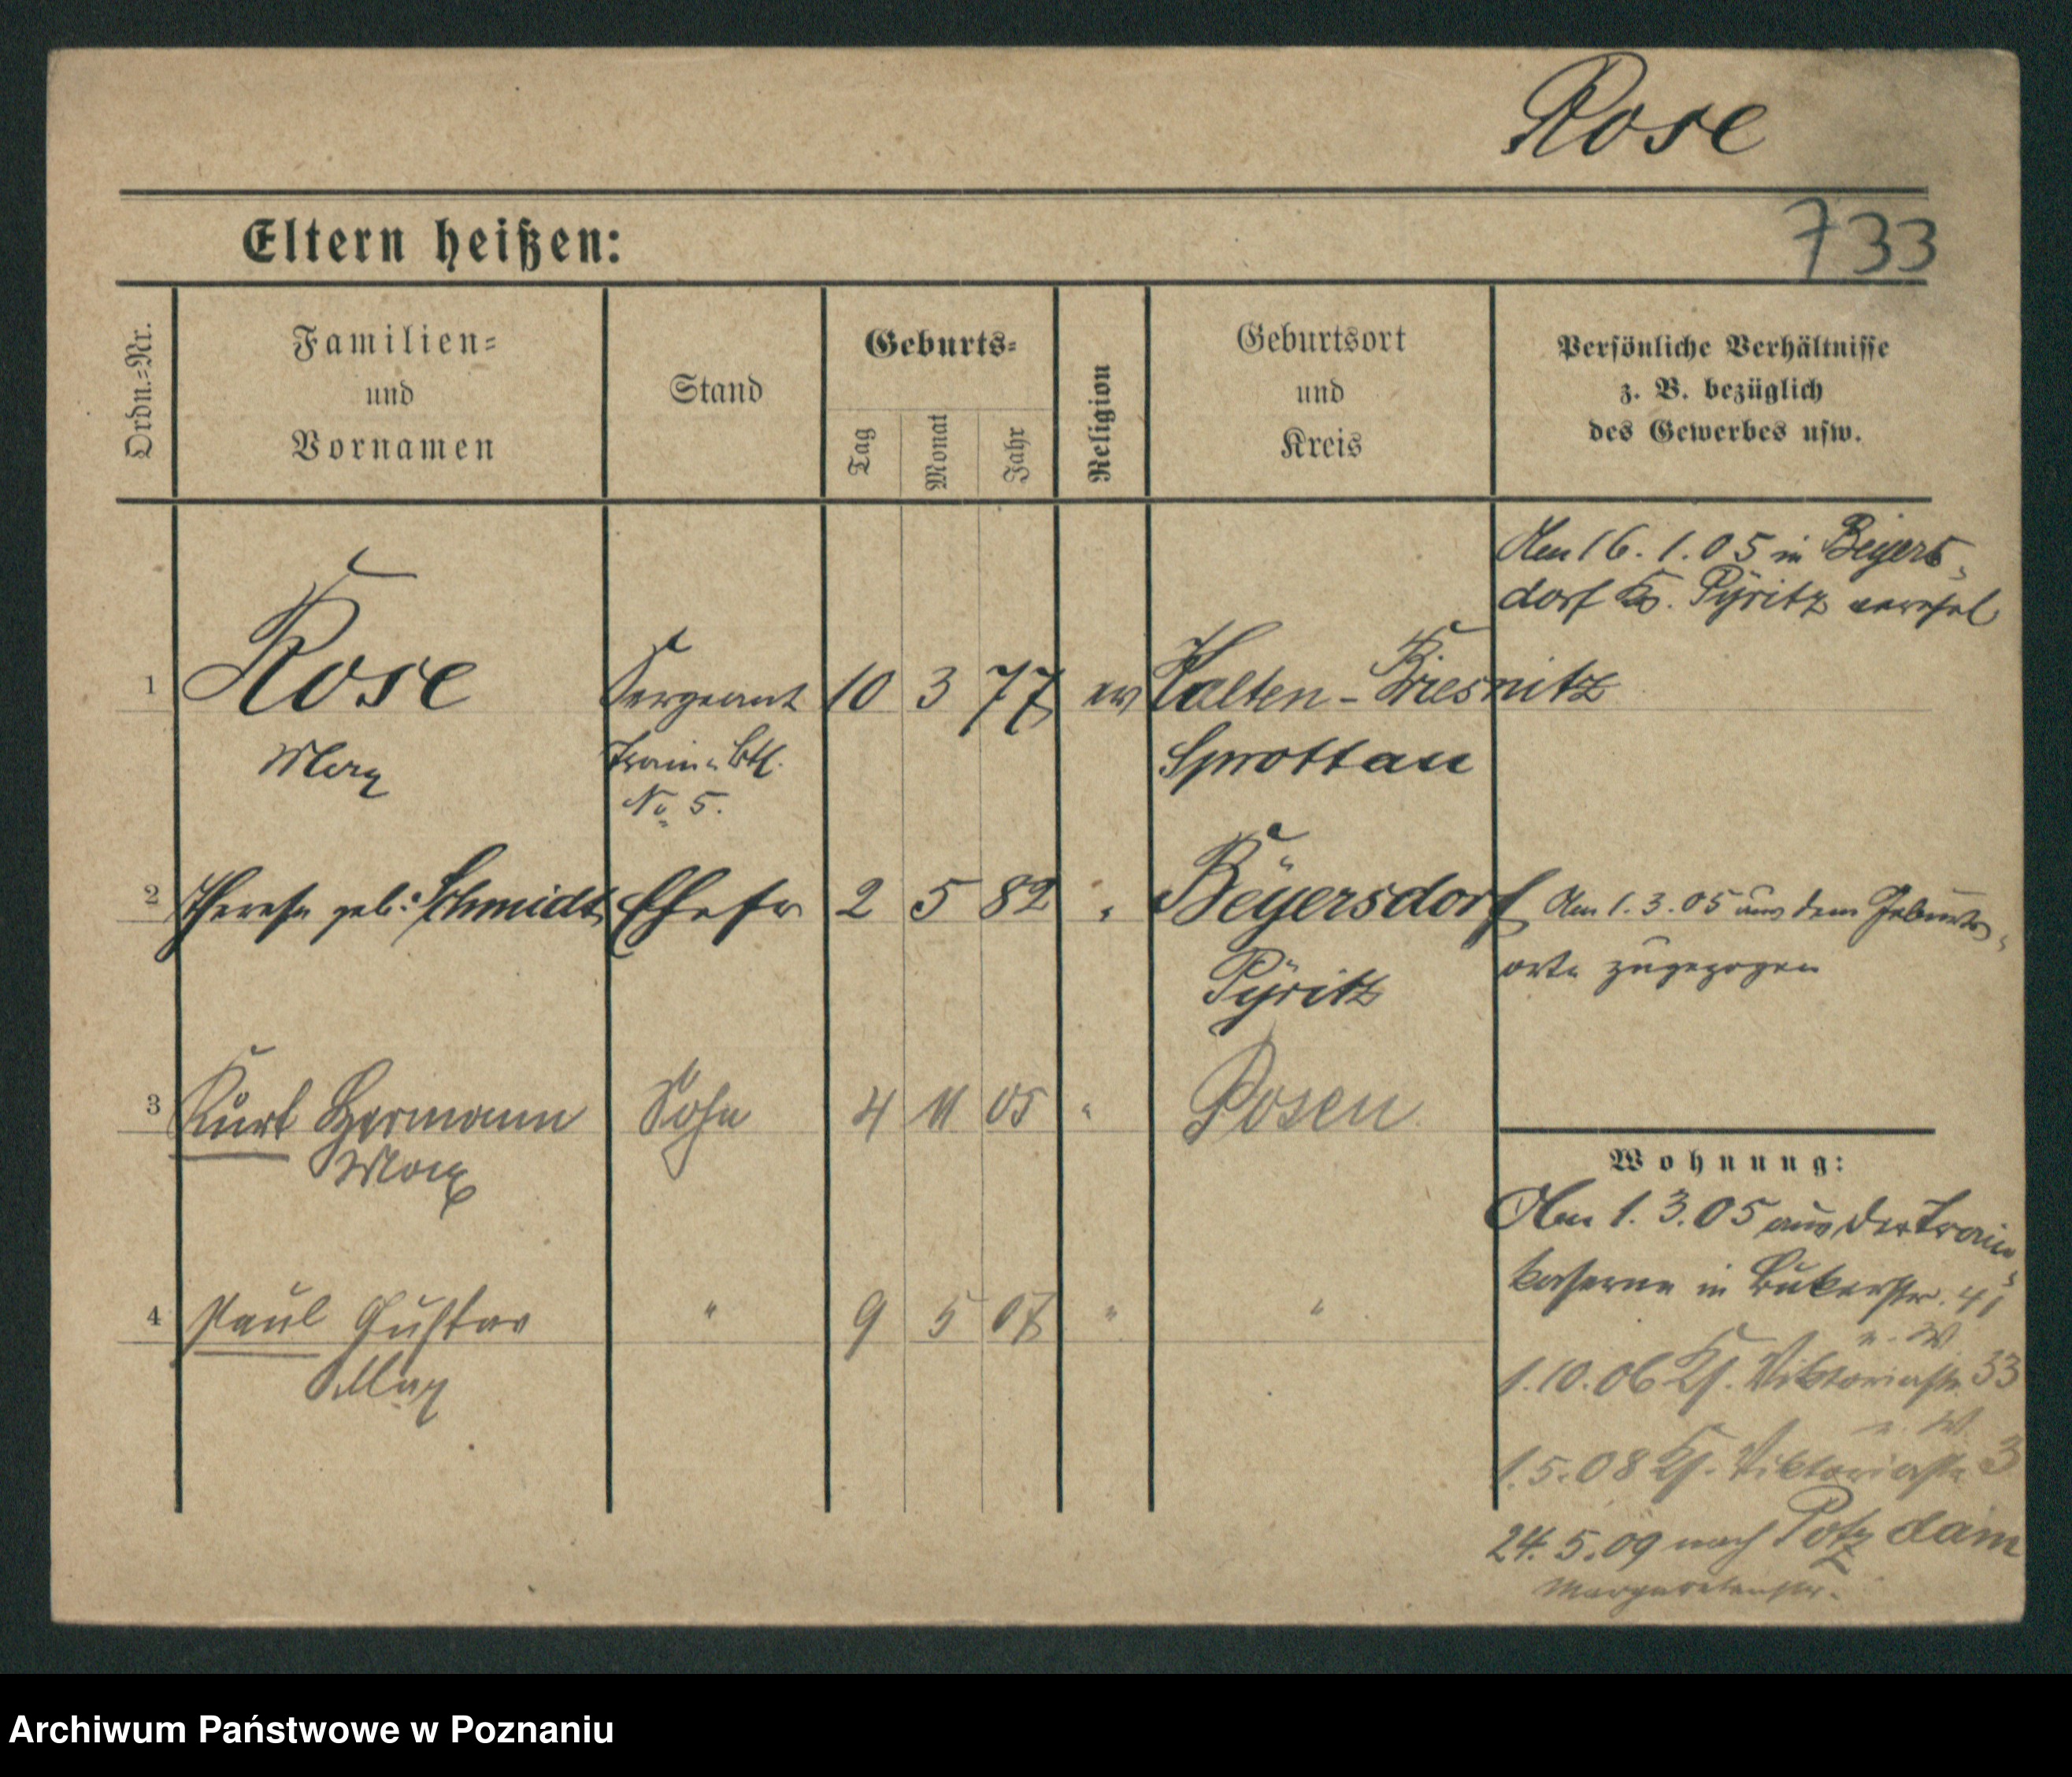 Rose
Eltern heißen:
733
Ordn.=Nr.
Familien=
und
Vornamen
Stand
Geburts=
Tag
Monat
Jahr
Religion
Geburtsort
und
Kreis
Persönliche Verhältnisse
z. B. bezüglich
des Gewerbes usw.
Am 16. 1. 05 in Beyers
dorf Ks. Pyritz verehel
1 Rose Sergeant 10 3 77 ev Kalten-Briesnitz
Max Train-Btl. Sprottau
No 5.
2 Therese geb. Schmidt Ehefr 2 5 82 " Beÿersdorf Am 1. 3. 05 aus dem Geburts
Pÿritz orte zugezogen
3 Kurt Hermann Sohn 4 11 05 " Posen
Max
Wohnung:
Am 1. 3. 05 aus der Train
kaserne in Bukerstr. 41
4 Paul Gustav " 9 5 07 " "
Max
n. W.
1.10.06 Viktoriastr 33
n. W.
1.5.08 Viktoriastr 3
24. 5. 09 nach Potzdam
Margaretenstr.
Archiwum Państwowe w Poznaniu